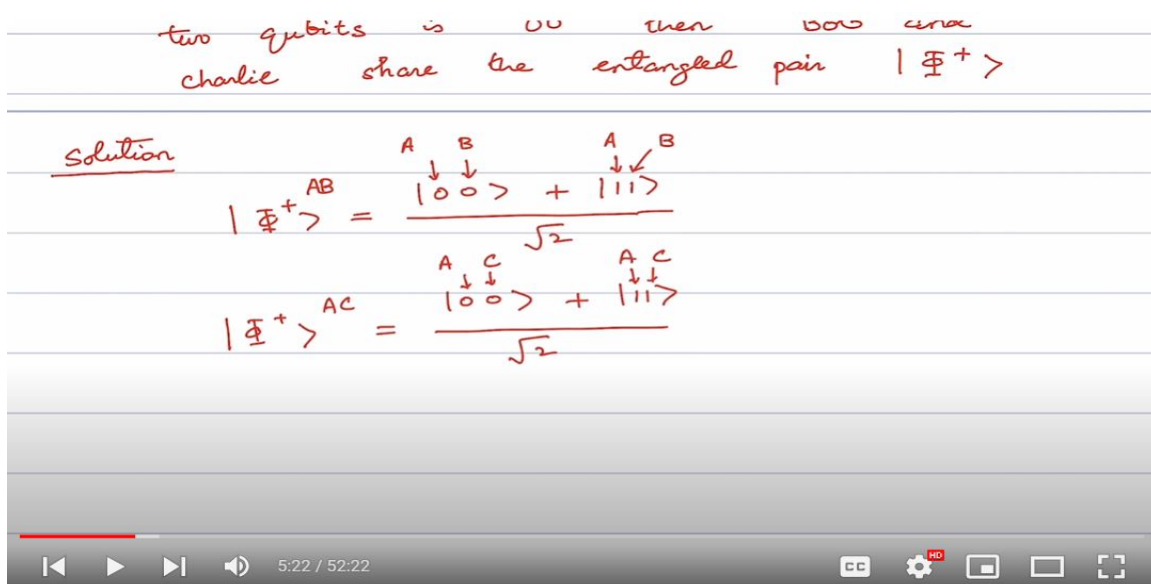 two qubits is 00 then Bob and
charlie share the entangled pair |Φ⁺>
Solution
A B A B
↓ ↓ ↓ ↙
|Φ⁺>ᴬᴮ = |00> + |11>
√2
A C A C
↓ ↓ ↓ ↓
|Φ⁺>ᴬᶜ = |00> + |11>
√2
5:22 / 52:22 CC HD